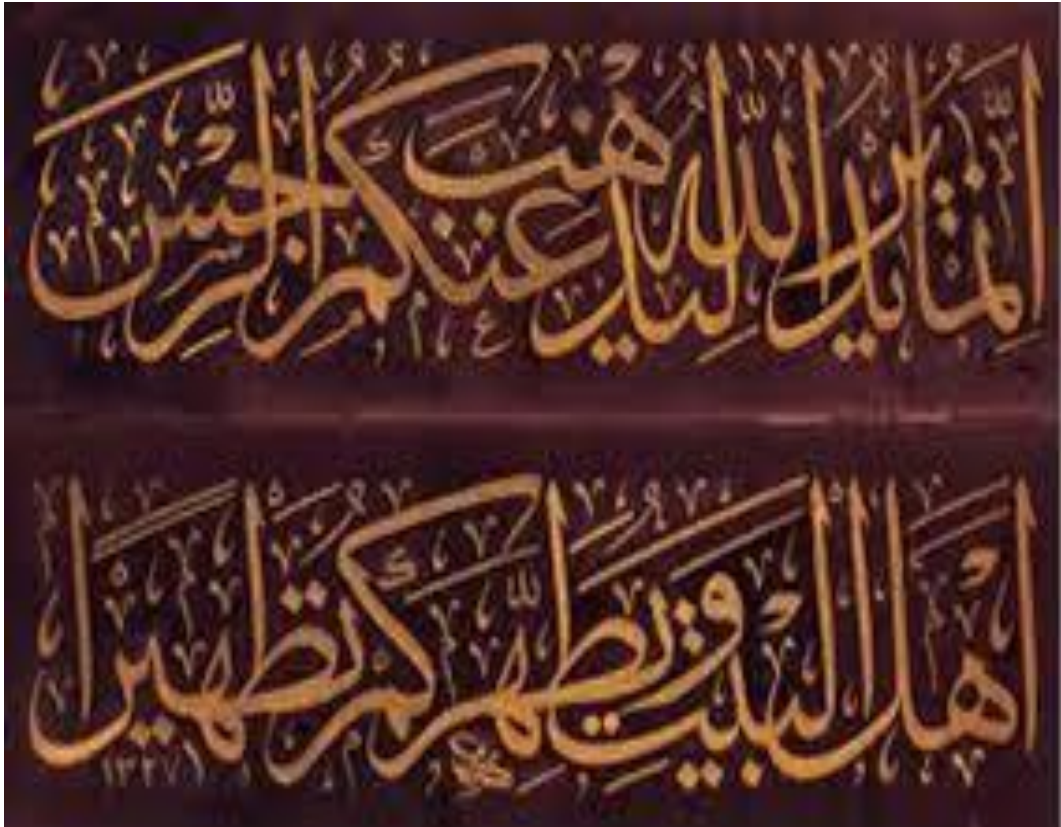 إِنَّمَا يُرِيدُ اللَّهُ لِيُذْهِبَ عَنْكُمُ الرِّجْسَ
أَهْلَ الْبَيْتِ وَيُطَهِّرَكُمْ تَطْهِيرًا